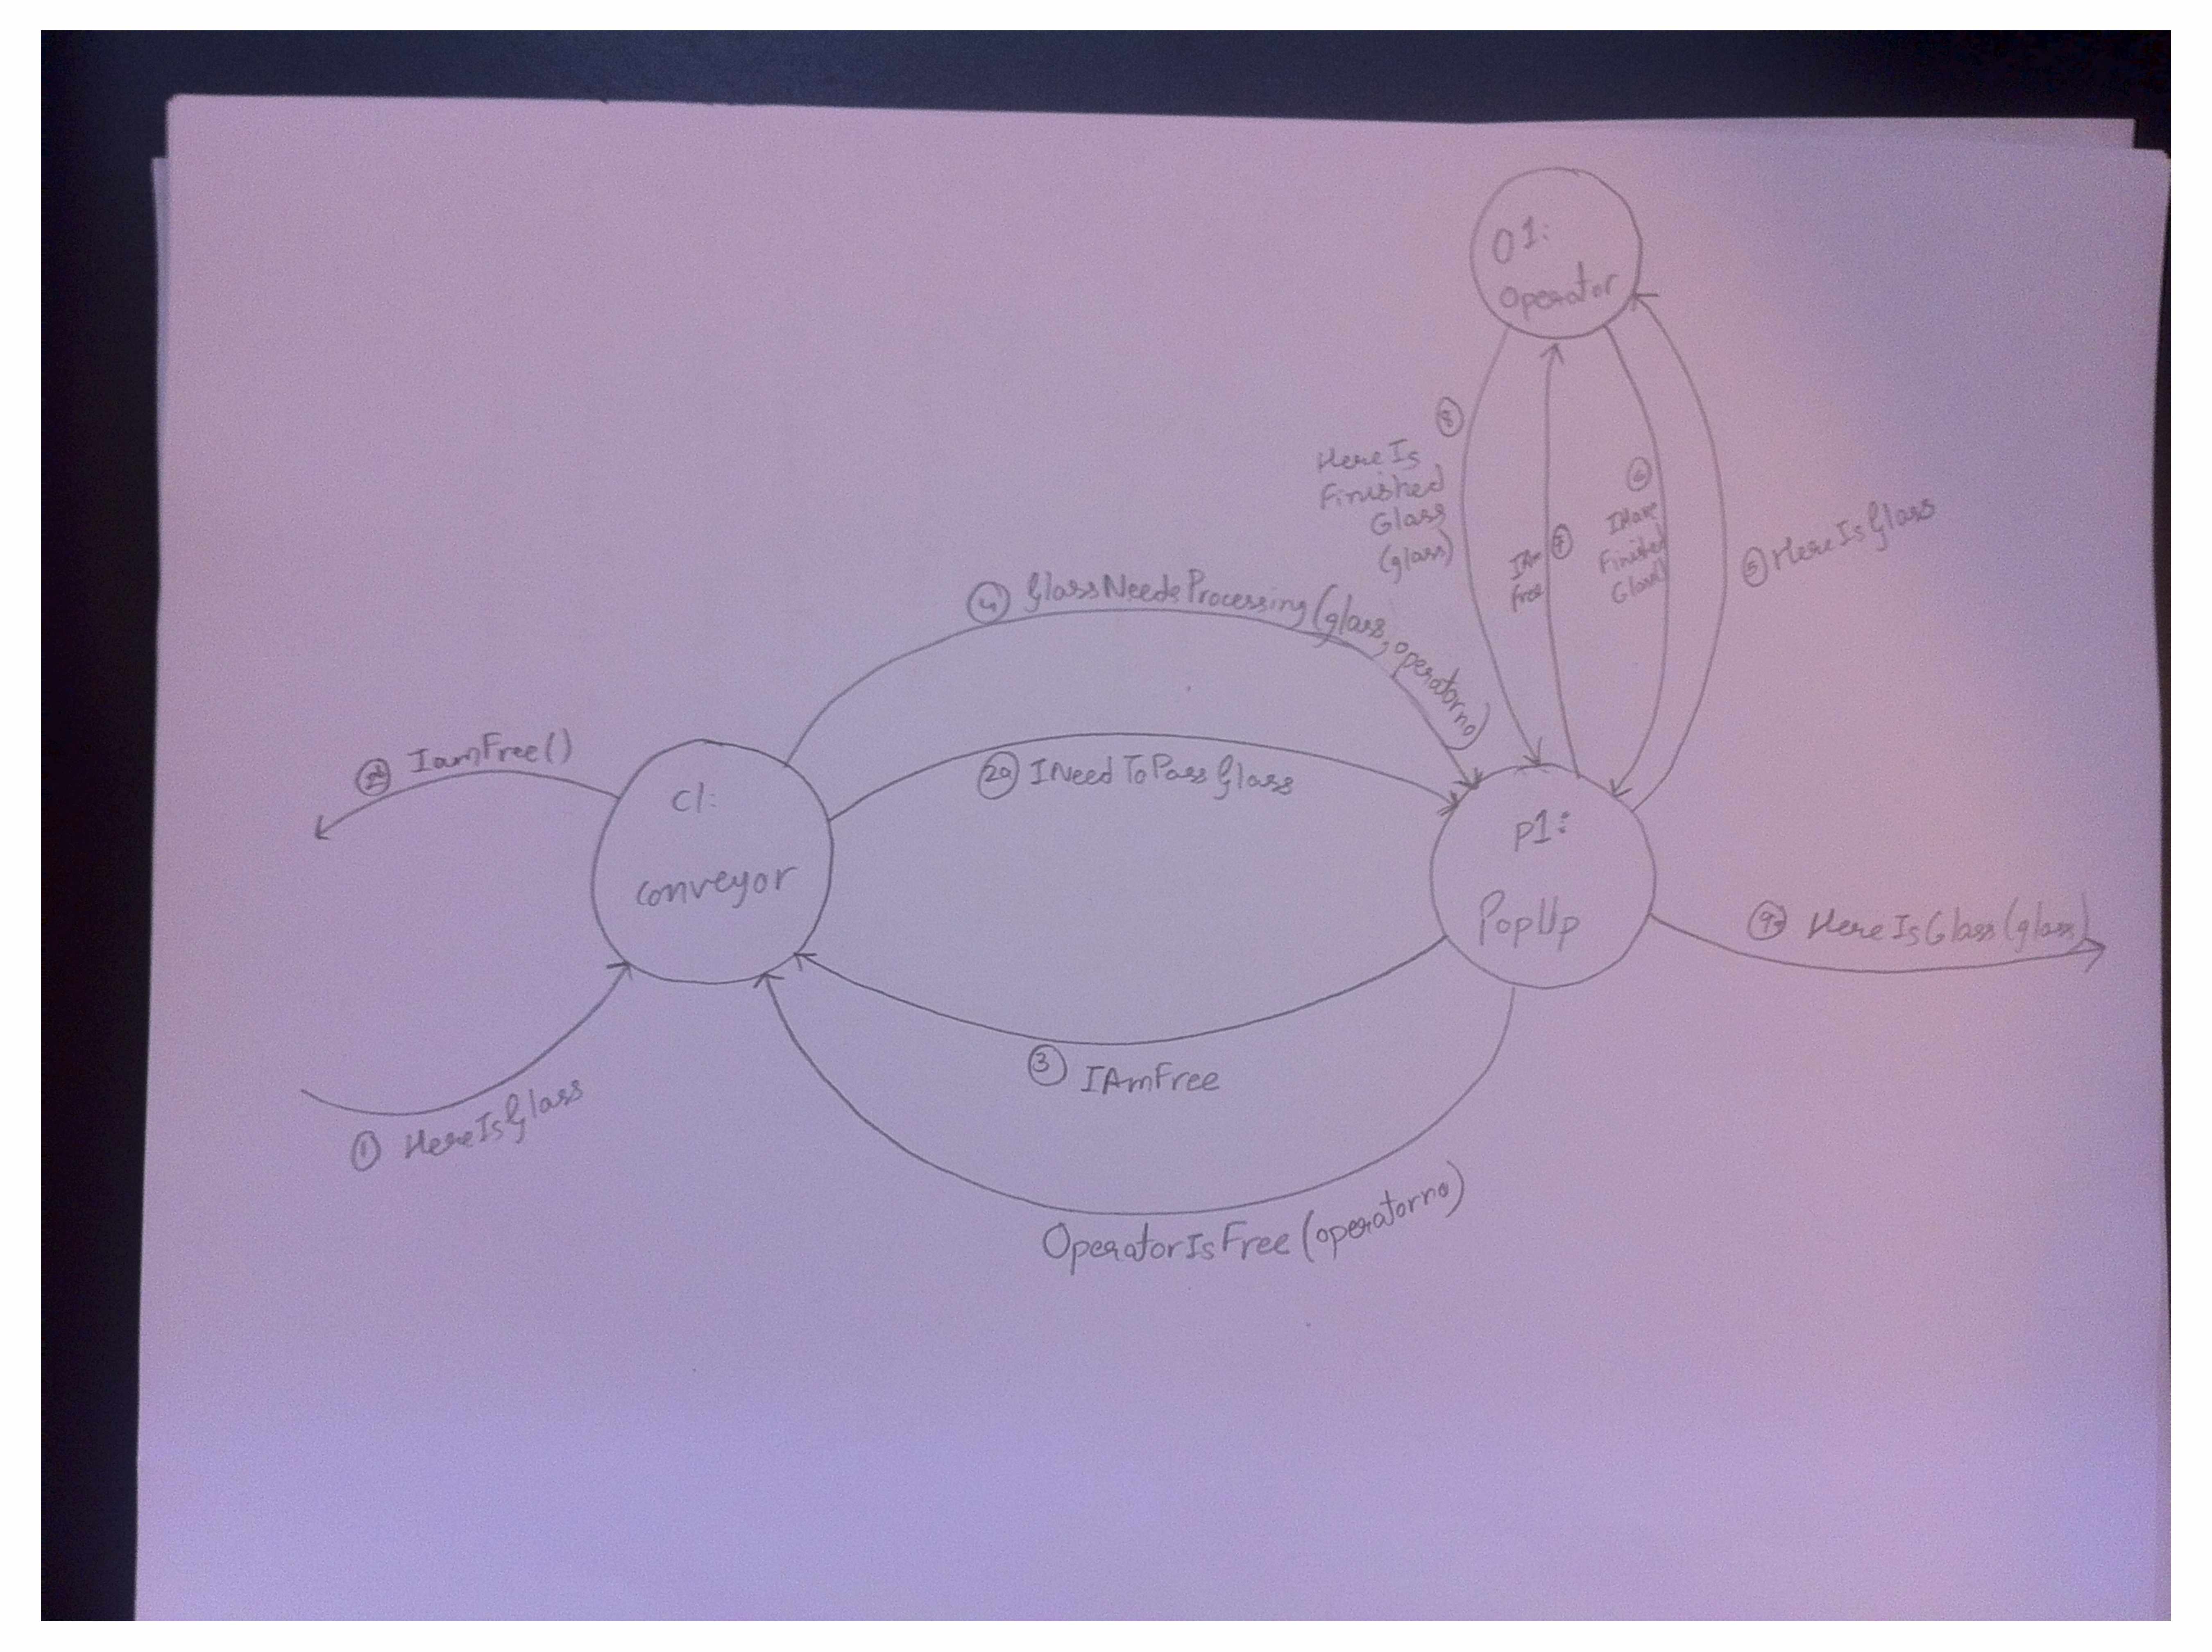 O1:
Operator
8
HereIs
Finished
Glass
(glass)
7
IAm
Free
6
IHave
Finished
Glass()
5 HereIsGlass
4 GlassNeedsProcessing(glass, operatorno)
2a INeedToPassGlass
IamFree()
C1:
Conveyor
P1:
PopUp
HereIsGlass(glass)
3 IAmFree
1 HereIsGlass
OperatorIsFree(operatorno)